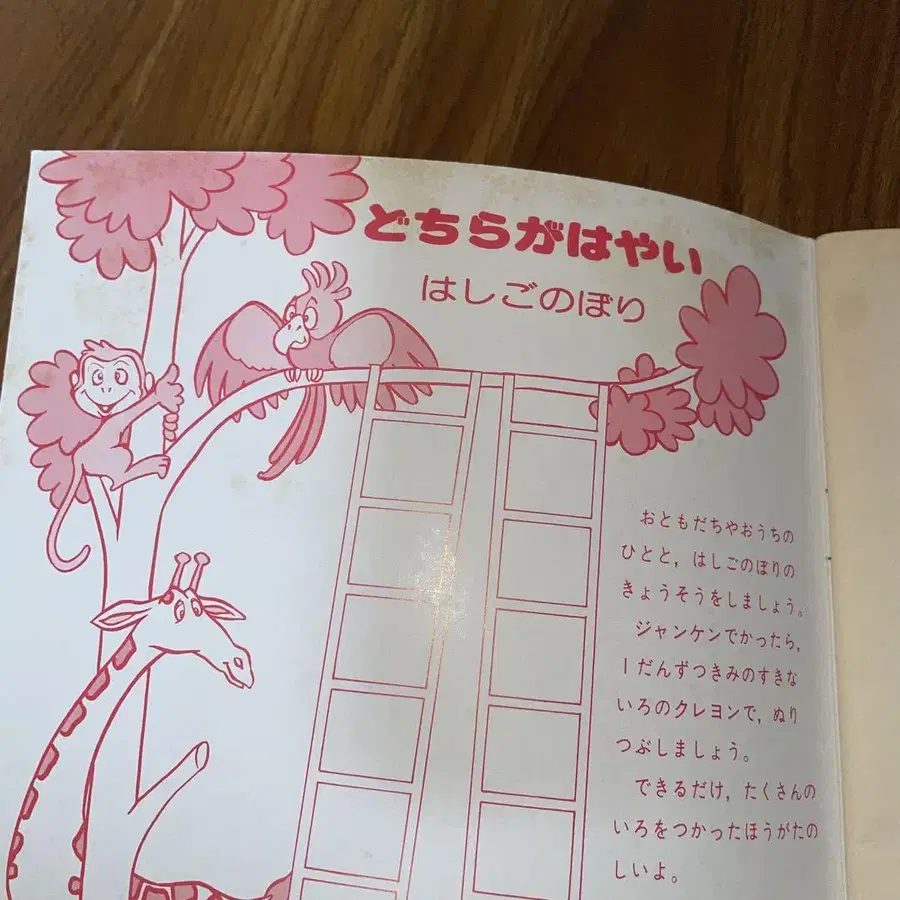 どちらがはやい
はしごのぼり
おともだちやおうちの
ひとと，はしごのぼりの
きょうそうをしましょう。
ジャンケンでかったら，
1だんずつきみのすきな
いろのクレヨンで，ぬり
つぶしましょう。
できるだけ，たくさんの
いろをつかったほうがたの
しいよ。